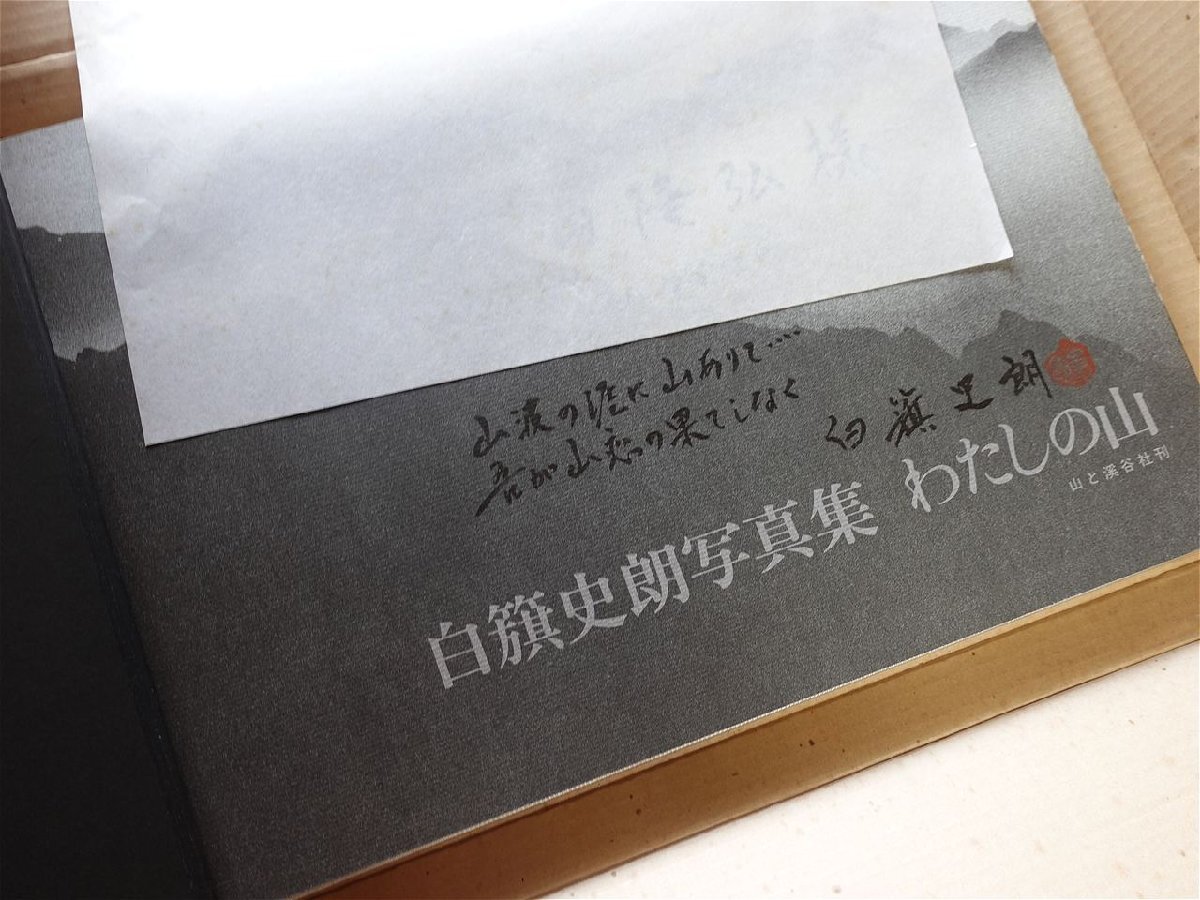 隆弘様
山波の涯に山ありて‥‥
吾が山恋の果てしなく
白籏史朗
白籏史朗写真集 わたしの山
山と溪谷社刊